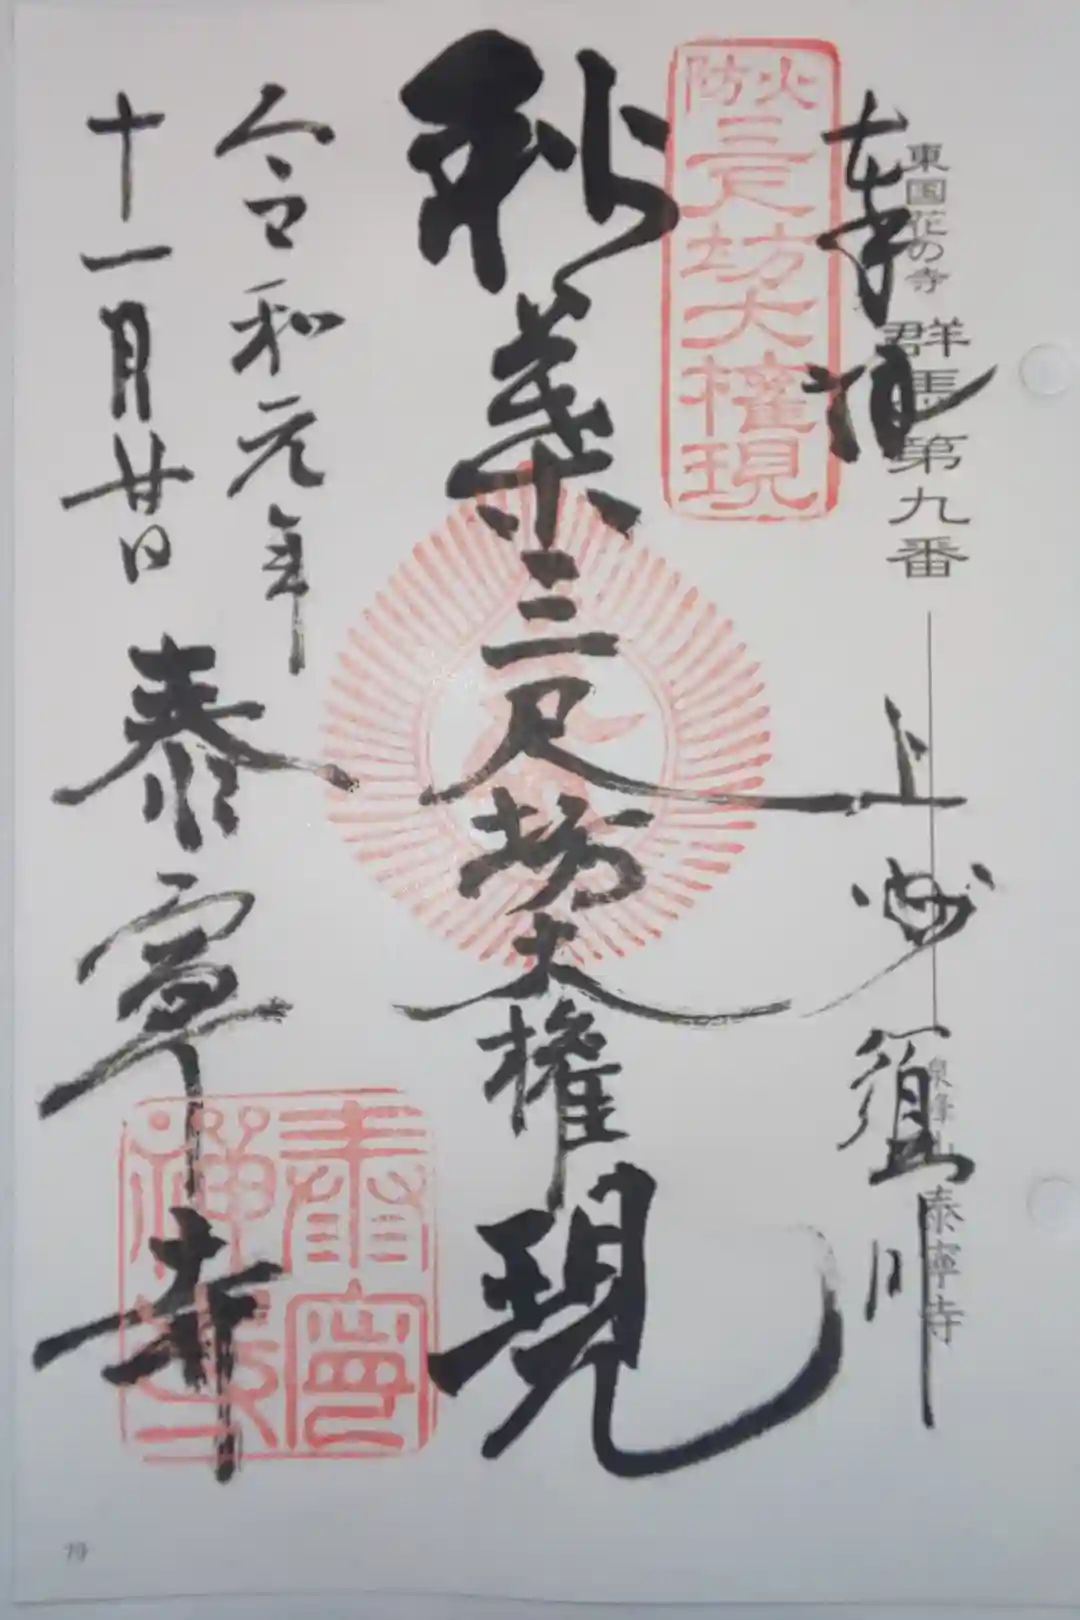 東国花の寺 群馬第九番
泉峰山 泰寧寺
奉拝
上州須川
火防
三尺坊大権現
秋葉三尺坊大権現
令和元年
十一月廿日
泰寧寺
泰寧
禅寺